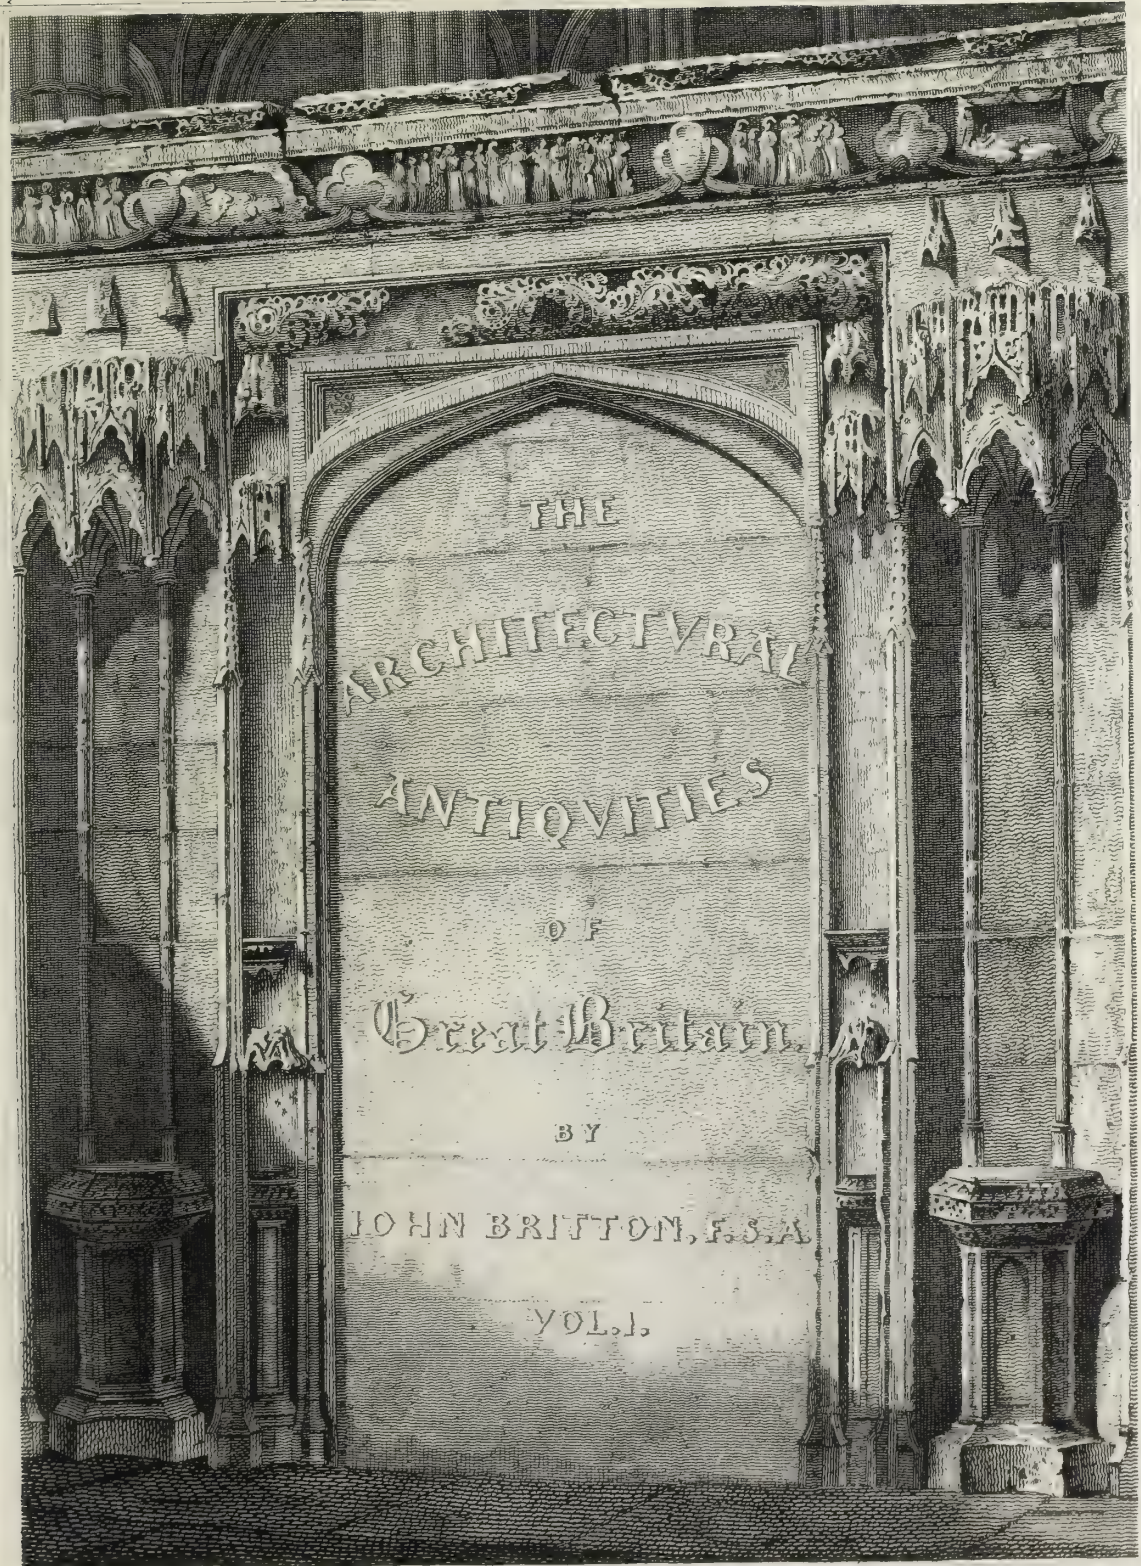 THE
ARCHITECTVRAL
ANTIQVITIES
OF
Great Britain
BY
JOHN BRITTON, F.S.A
VOL. I.